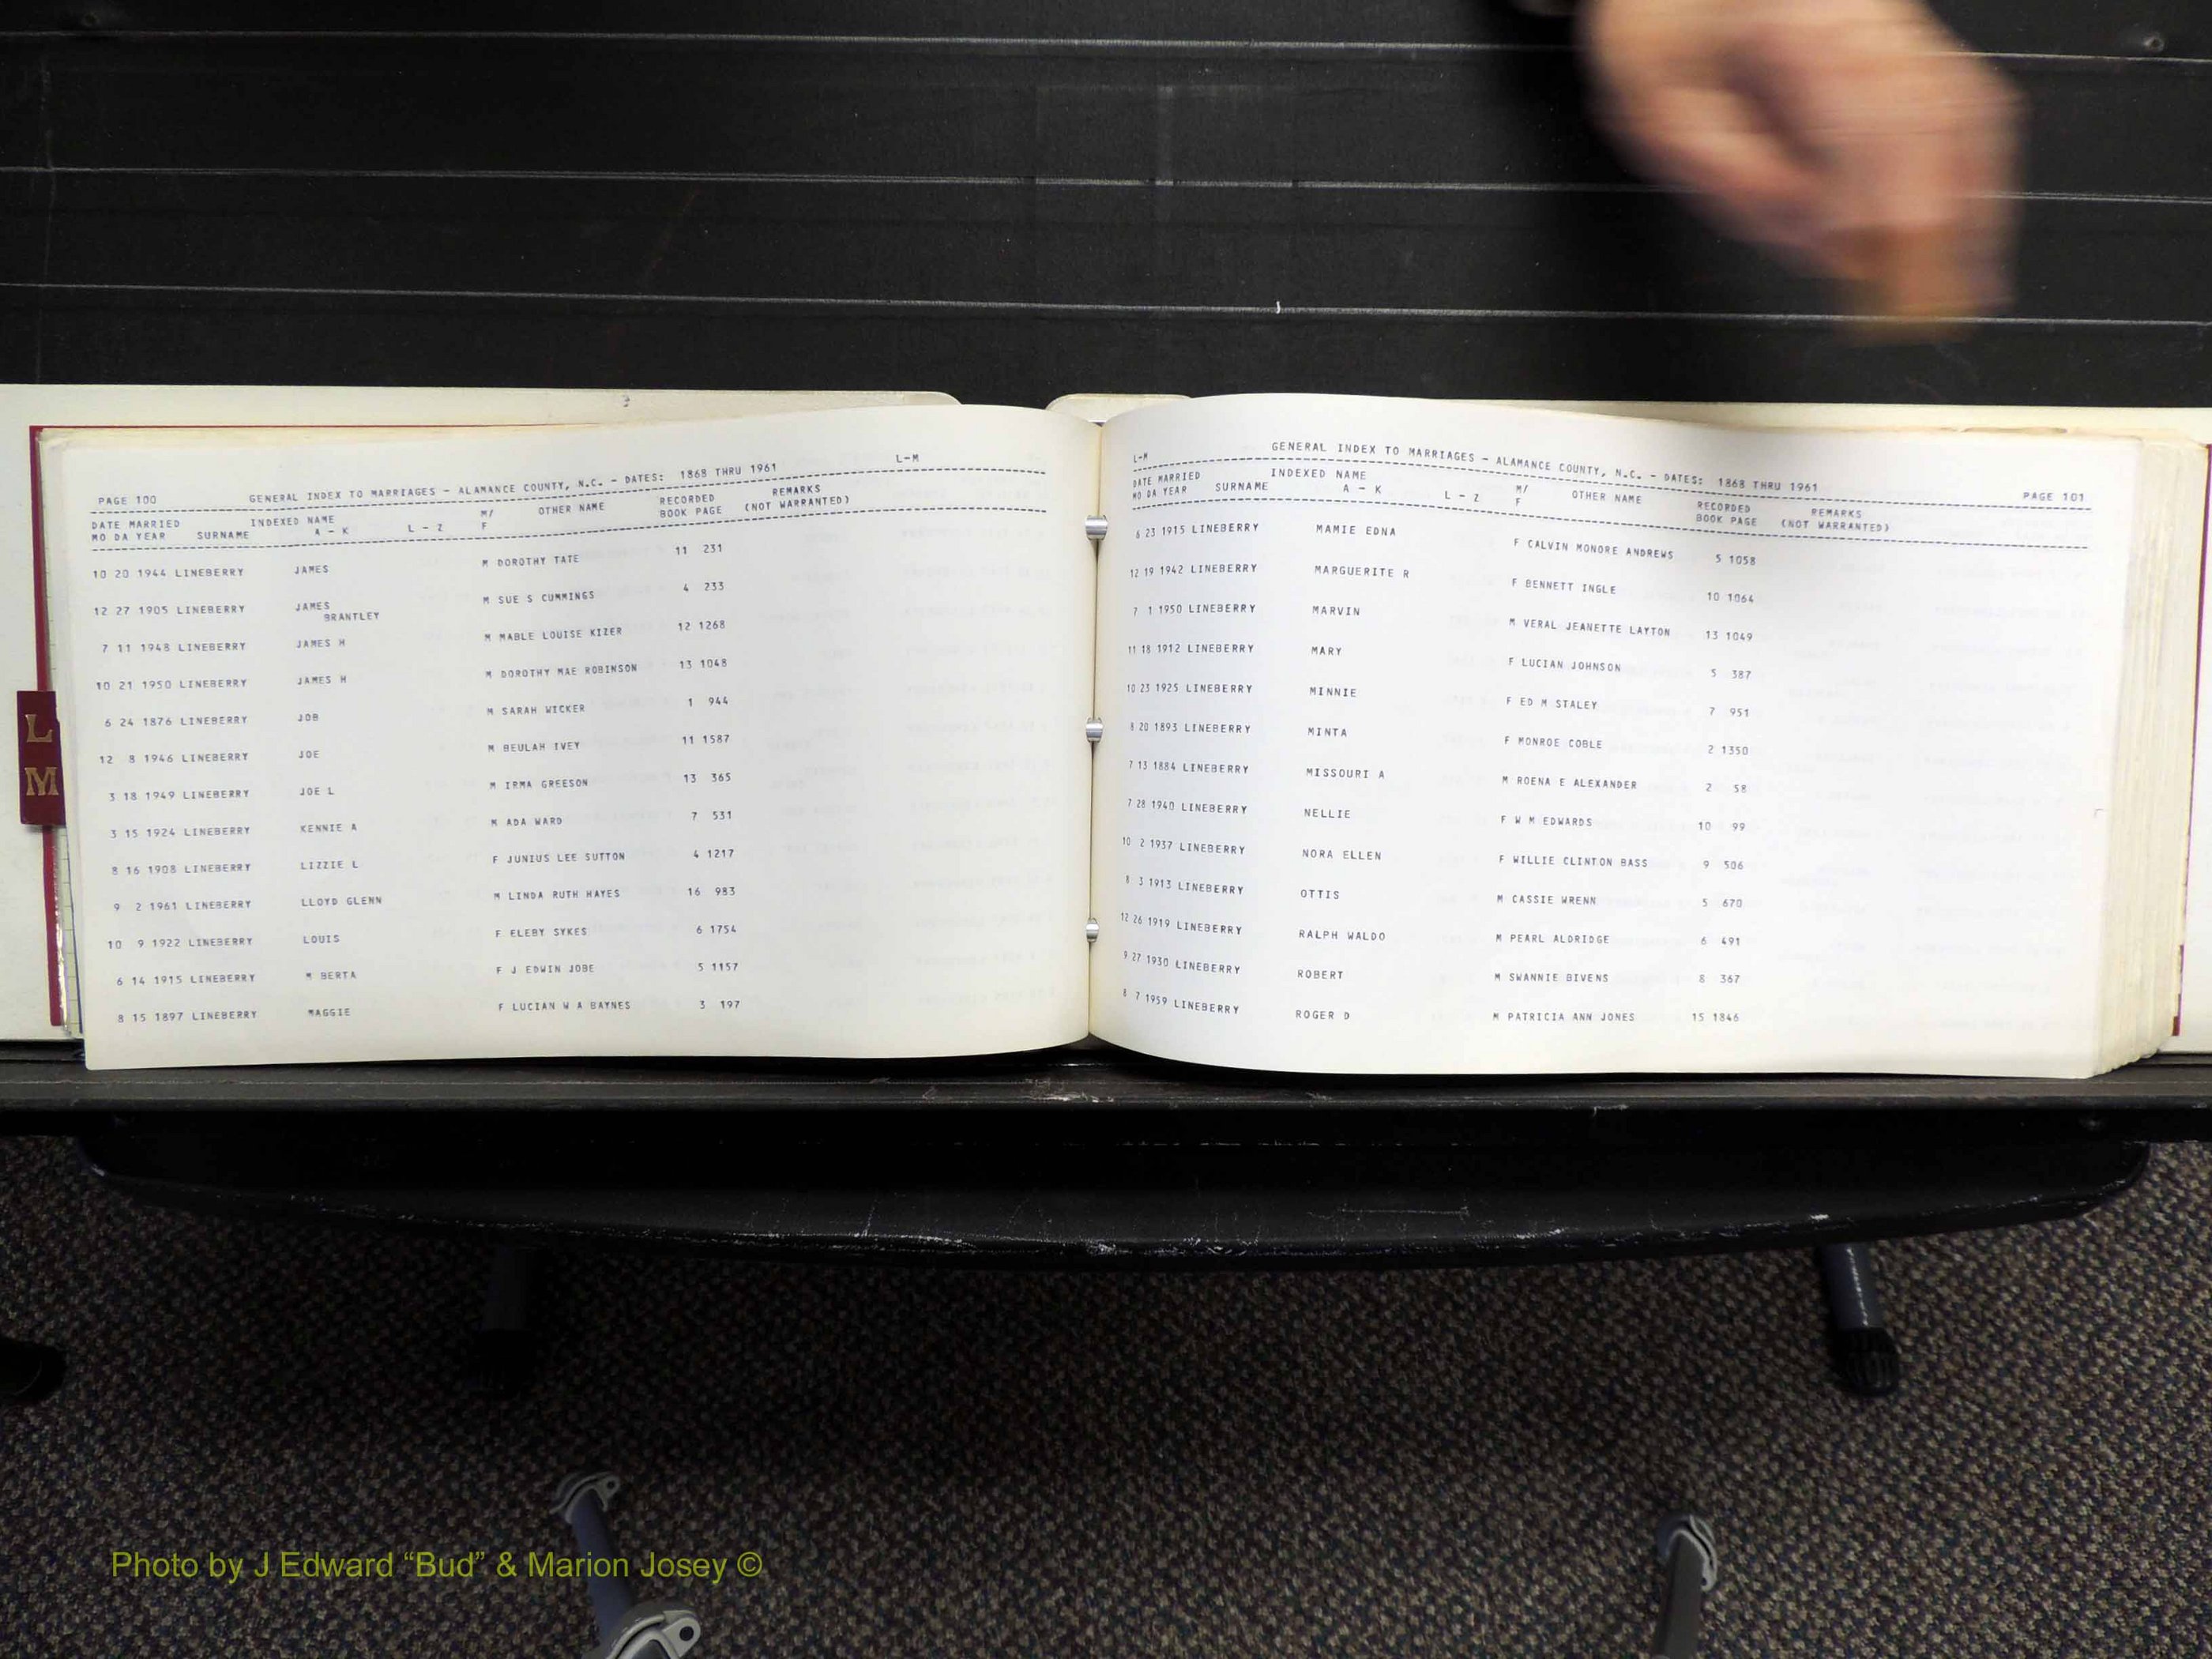 L-M
PAGE 100 GENERAL INDEX TO MARRIAGES - ALAMANCE COUNTY, N.C. - DATES: 1868 THRU 1961
DATE MARRIED INDEXED NAME M/ OTHER NAME RECORDED REMARKS
MO DA YEAR SURNAME A - K L - Z F BOOK PAGE (NOT WARRANTED)
10 20 1944 LINEBERRY JAMES M DOROTHY TATE 11 231
12 27 1905 LINEBERRY JAMES M SUE S CUMMINGS 4 233
BRANTLEY
7 11 1948 LINEBERRY JAMES H M MABLE LOUISE KIZER 12 1268
10 21 1950 LINEBERRY JAMES H M DOROTHY MAE ROBINSON 13 1048
6 24 1876 LINEBERRY JOB M SARAH WICKER 1 944
12 8 1946 LINEBERRY JOE M BEULAH IVEY 11 1587
3 18 1949 LINEBERRY JOE L M IRMA GREESON 13 365
3 15 1924 LINEBERRY KENNIE A M ADA WARD 7 531
8 16 1908 LINEBERRY LIZZIE L F JUNIUS LEE SUTTON 4 1217
9 2 1961 LINEBERRY LLOYD GLENN M LINDA RUTH HAYES 16 983
10 9 1922 LINEBERRY LOUIS F ELEBY SYKES 6 1754
6 14 1915 LINEBERRY M BERTA F J EDWIN JOBE 5 1157
8 15 1897 LINEBERRY MAGGIE F LUCIAN W A BAYNES 3 197
L-M GENERAL INDEX TO MARRIAGES - ALAMANCE COUNTY, N.C. - DATES: 1868 THRU 1961 PAGE 101
DATE MARRIED INDEXED NAME M/ OTHER NAME RECORDED REMARKS
MO DA YEAR SURNAME A - K L - Z F BOOK PAGE (NOT WARRANTED)
6 23 1915 LINEBERRY MAMIE EDNA F CALVIN MONORE ANDREWS 5 1058
12 19 1942 LINEBERRY MARGUERITE R F BENNETT INGLE 10 1064
7 1 1950 LINEBERRY MARVIN M VERAL JEANETTE LAYTON 13 1049
11 18 1912 LINEBERRY MARY F LUCIAN JOHNSON 5 387
10 23 1925 LINEBERRY MINNIE F ED M STALEY 7 951
8 20 1893 LINEBERRY MINTA F MONROE COBLE 2 1350
7 13 1884 LINEBERRY MISSOURI A M ROENA E ALEXANDER 2 58
7 28 1940 LINEBERRY NELLIE F W M EDWARDS 10 99
10 2 1937 LINEBERRY NORA ELLEN F WILLIE CLINTON BASS 9 506
8 3 1913 LINEBERRY OTTIS M CASSIE WRENN 5 670
12 26 1919 LINEBERRY RALPH WALDO M PEARL ALDRIDGE 6 491
9 27 1930 LINEBERRY ROBERT M SWANNIE BIVENS 8 367
8 7 1959 LINEBERRY ROGER D M PATRICIA ANN JONES 15 1846
L
M
Photo by J Edward “Bud” & Marion Josey ©